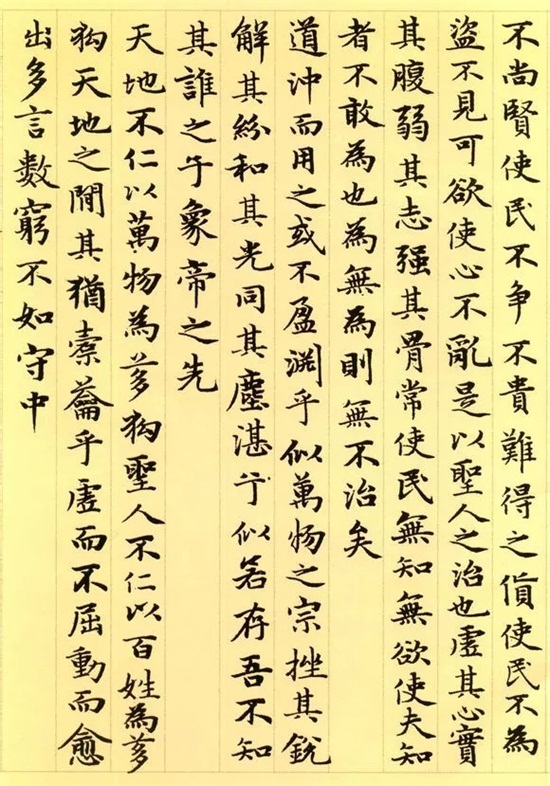 不尚賢使民不争不貴難得之貨使民不為
盜不見可欲使心不亂是以聖人之治也虛其心實
其腹弱其志强其骨常使民無知無欲使夫知
者不敢為也為無為則無不治矣
道沖而用之或不盈淵乎似萬物之宗挫其銳
解其紛和其光同其塵湛兮似若存吾不知
其誰之子象帝之先
天地不仁以萬物為芻狗聖人不仁以百姓為芻
狗天地之間其猶橐籥乎虛而不屈動而愈
出多言數窮不如守中